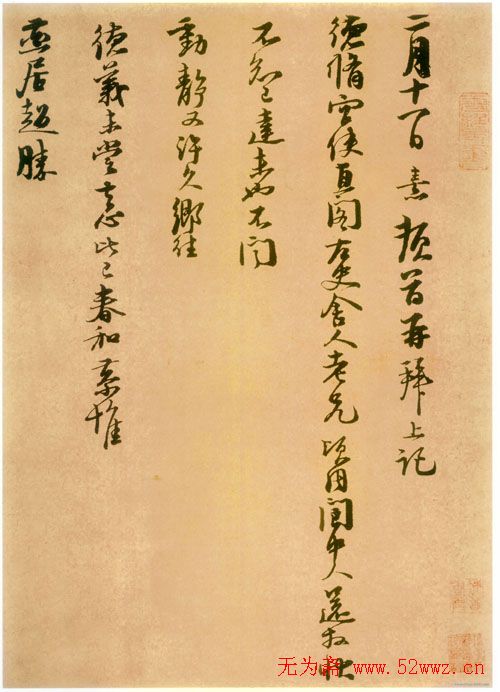 二月十一日熹頓首再拜上記
德脩宮使直閣左史舍人老兄頃因閩中人還
不知已達未也不聞
動靜又許久鄉往
德義未嘗去心比已春和恭惟
燕居超勝
无为斋 www.52wwz.cn